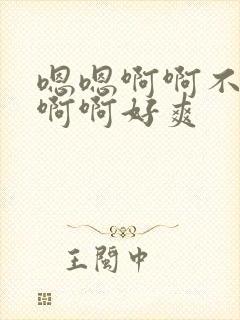 嗯嗯啊啊不
啊啊好爽
王閩中